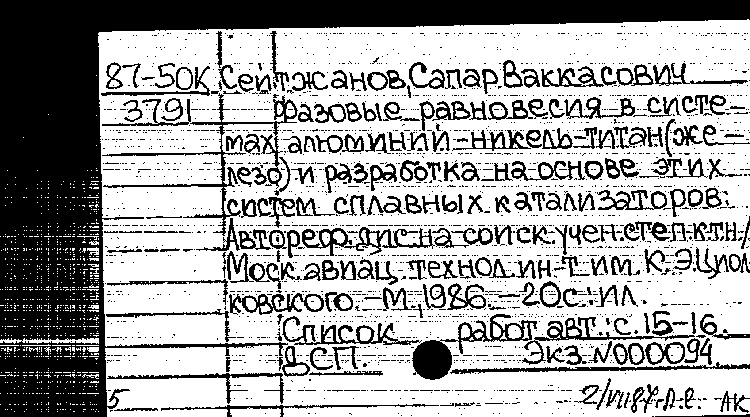 87-50К Сейтжанов, Сапар Ваккасович
3791 Фазовые равновесия в систе-
мах алюминий-никель-титан(же-
лезо) и разработка на основе этих
систем сплавных катализаторов:
Автореф.дис.на соиск.учен.степ.ктн./
Моск.авиац.технол.ин-т им.К.Э.Циол
ковского.-М.,1986.-20с.:ил.
Список работ авт.:с.15-16.
ДСП. Экз.N000094.
5
АК